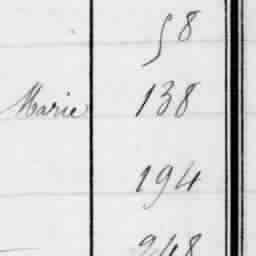 58
Marie 138
194
248